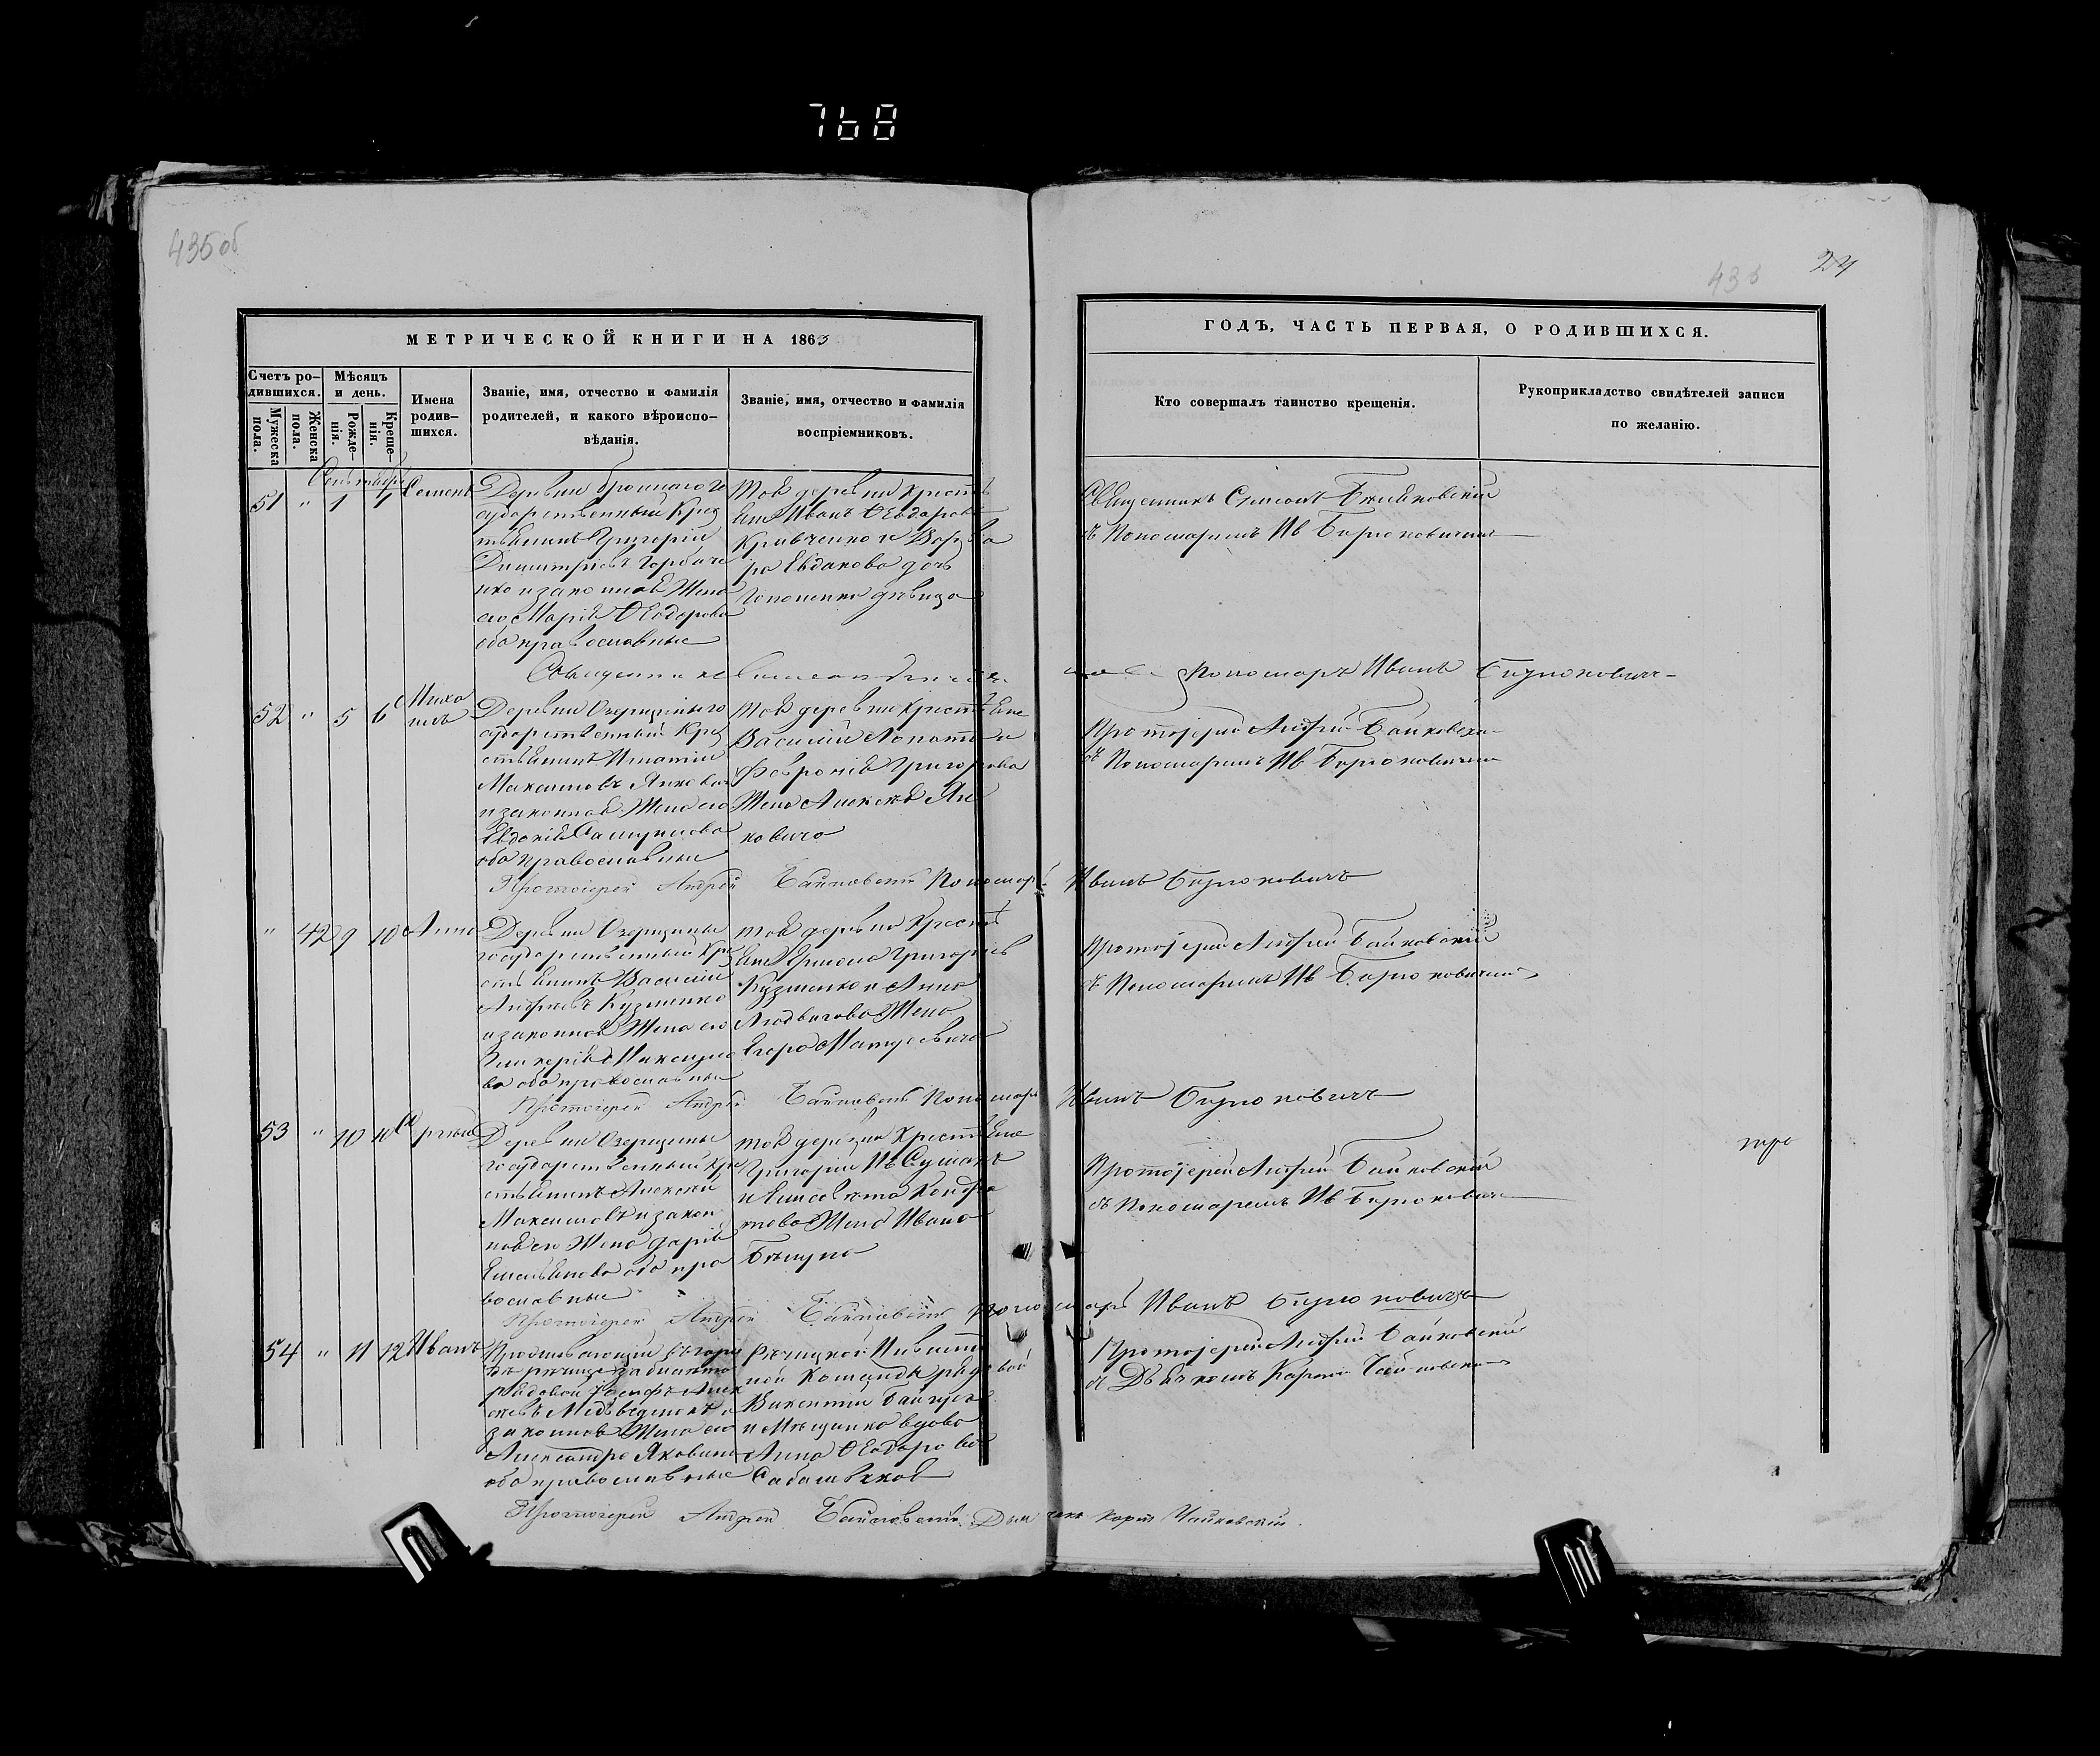 768
435об
436
24
МЕТРИЧЕСКОЙ КНИГИ НА 1863
ГОДЪ, ЧАСТЬ ПЕРВАЯ, О РОДИВШИХСЯ.
Счетъ ро-
дившихся.
Мужеска
пола.
Женска
пола.
Мѣсяцъ
и день.
Рожде-
нія.
Креще-
нія.
Имена
родив-
шихся.
Званіе, имя, отчество и фамилія
родителей, и какого вѣроиспо-
вѣданія.
Званіе, имя, отчество и фамилія
воспріемниковъ.
Кто совершалъ таинство крещенія.
Рукоприкладство свидѣтелей записи
по желанію.
Сентябрь
51 " 1 1 Семенъ
Деревни Броннаго го
сударственный Крес
тьянинъ Григорій
Димитріевъ Горбаче
нко и законная Жена
его Марія Ѳеодорова
оба православные
Той деревни Кресть
яне Иванъ Ѳеодоровъ
Кравченко и Варва
ра Евдакова дочь
дѣвица
Священникъ Симеонъ
съ Пономаремъ Ив Бируковичемъ
Священникъ
Пономарь Иванъ Бируковичъ
52 " 5 6 Миха
илъ
Деревни Озерщины го
сударственный Крес
тьянинъ Игнатій
Максимовъ
и законная Жена его
Евдокія Самуилова
оба православные
Той деревни Крестьяне
Василій
Февронія Григорова
Жена Алексѣя Ян
ковича
Протоіерей Андрей Байковскій
съ Пономаремъ Ив Бируковичемъ
Протоіерей Андрей Байковскій Пономарь Иванъ Бируковичъ
" 42 9 10 Анна
Деревни Озерщины
государственный Кре
стьянинъ Василій
Андреевъ Кузменко
и законная Жена его
Гликерія Максимо
ва оба православные
той деревни Кресть
яне Григорьевъ
Кузменко и Анна
Людвигова Жена
Егора Матусевича
Протоіерей Андрей Байковскій
съ Пономаремъ Ив Бируковичемъ
Протоіерей Андрей Байковскій Пономарь Иванъ Бируковичъ
53 " 10 10 Сергѣй
Деревни Озерщины
государственный Кре
стьянинъ Алексѣй
Максимовъ и закон
ная его Жена Дарія
Емельянова оба пра
вославные
той деревни Крестьяне
Григорій
и Елисавета Кондра
това Жена Ивана
Протоіерей Андрей Байковскій
съ Пономаремъ Ив Бируковичемъ
Протоіерей Андрей Байковскій Пономарь Иванъ Бируковичъ
54 " 11 12 Иванъ
Проживающій въ горо
дѣ Рѣчицѣ
рядовой Іосифъ Алек
сѣевъ и
законная Жена его
Александра Яковлева
оба православные
Рѣчицкой Инвалид
ной Команды рядовой
Викентій
и Мѣщанка вдова
Анна Ѳеодорова
Протоіерей Андрей Байковскій
съ Дьячкомъ Чайковскимъ
Протоіерей Андрей Байковскій Дьячекъ Чайковскій.